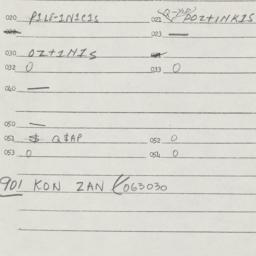 020 P1LF-1N1C1S 021 POZ+1NK1S
023 —
030 OZ+1N1S
032 0 033 0
040 —
050 —
051 $ Q$AP 052 0
053 0 054 0
901 KON ZAN K063030